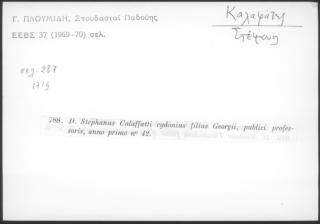 Γ. ΠΛΟΥΜΙΔΗ, Σπουδασταί Παδούης
ΕΕΒΣ 37 (1969-70) σελ.
Καλαφάτης
Στέφανος
σελ. 287
1715
788. D. Stephanus Calaffatti cydonius filius Georgii, publici profes-
soris, anno primo nº 42.